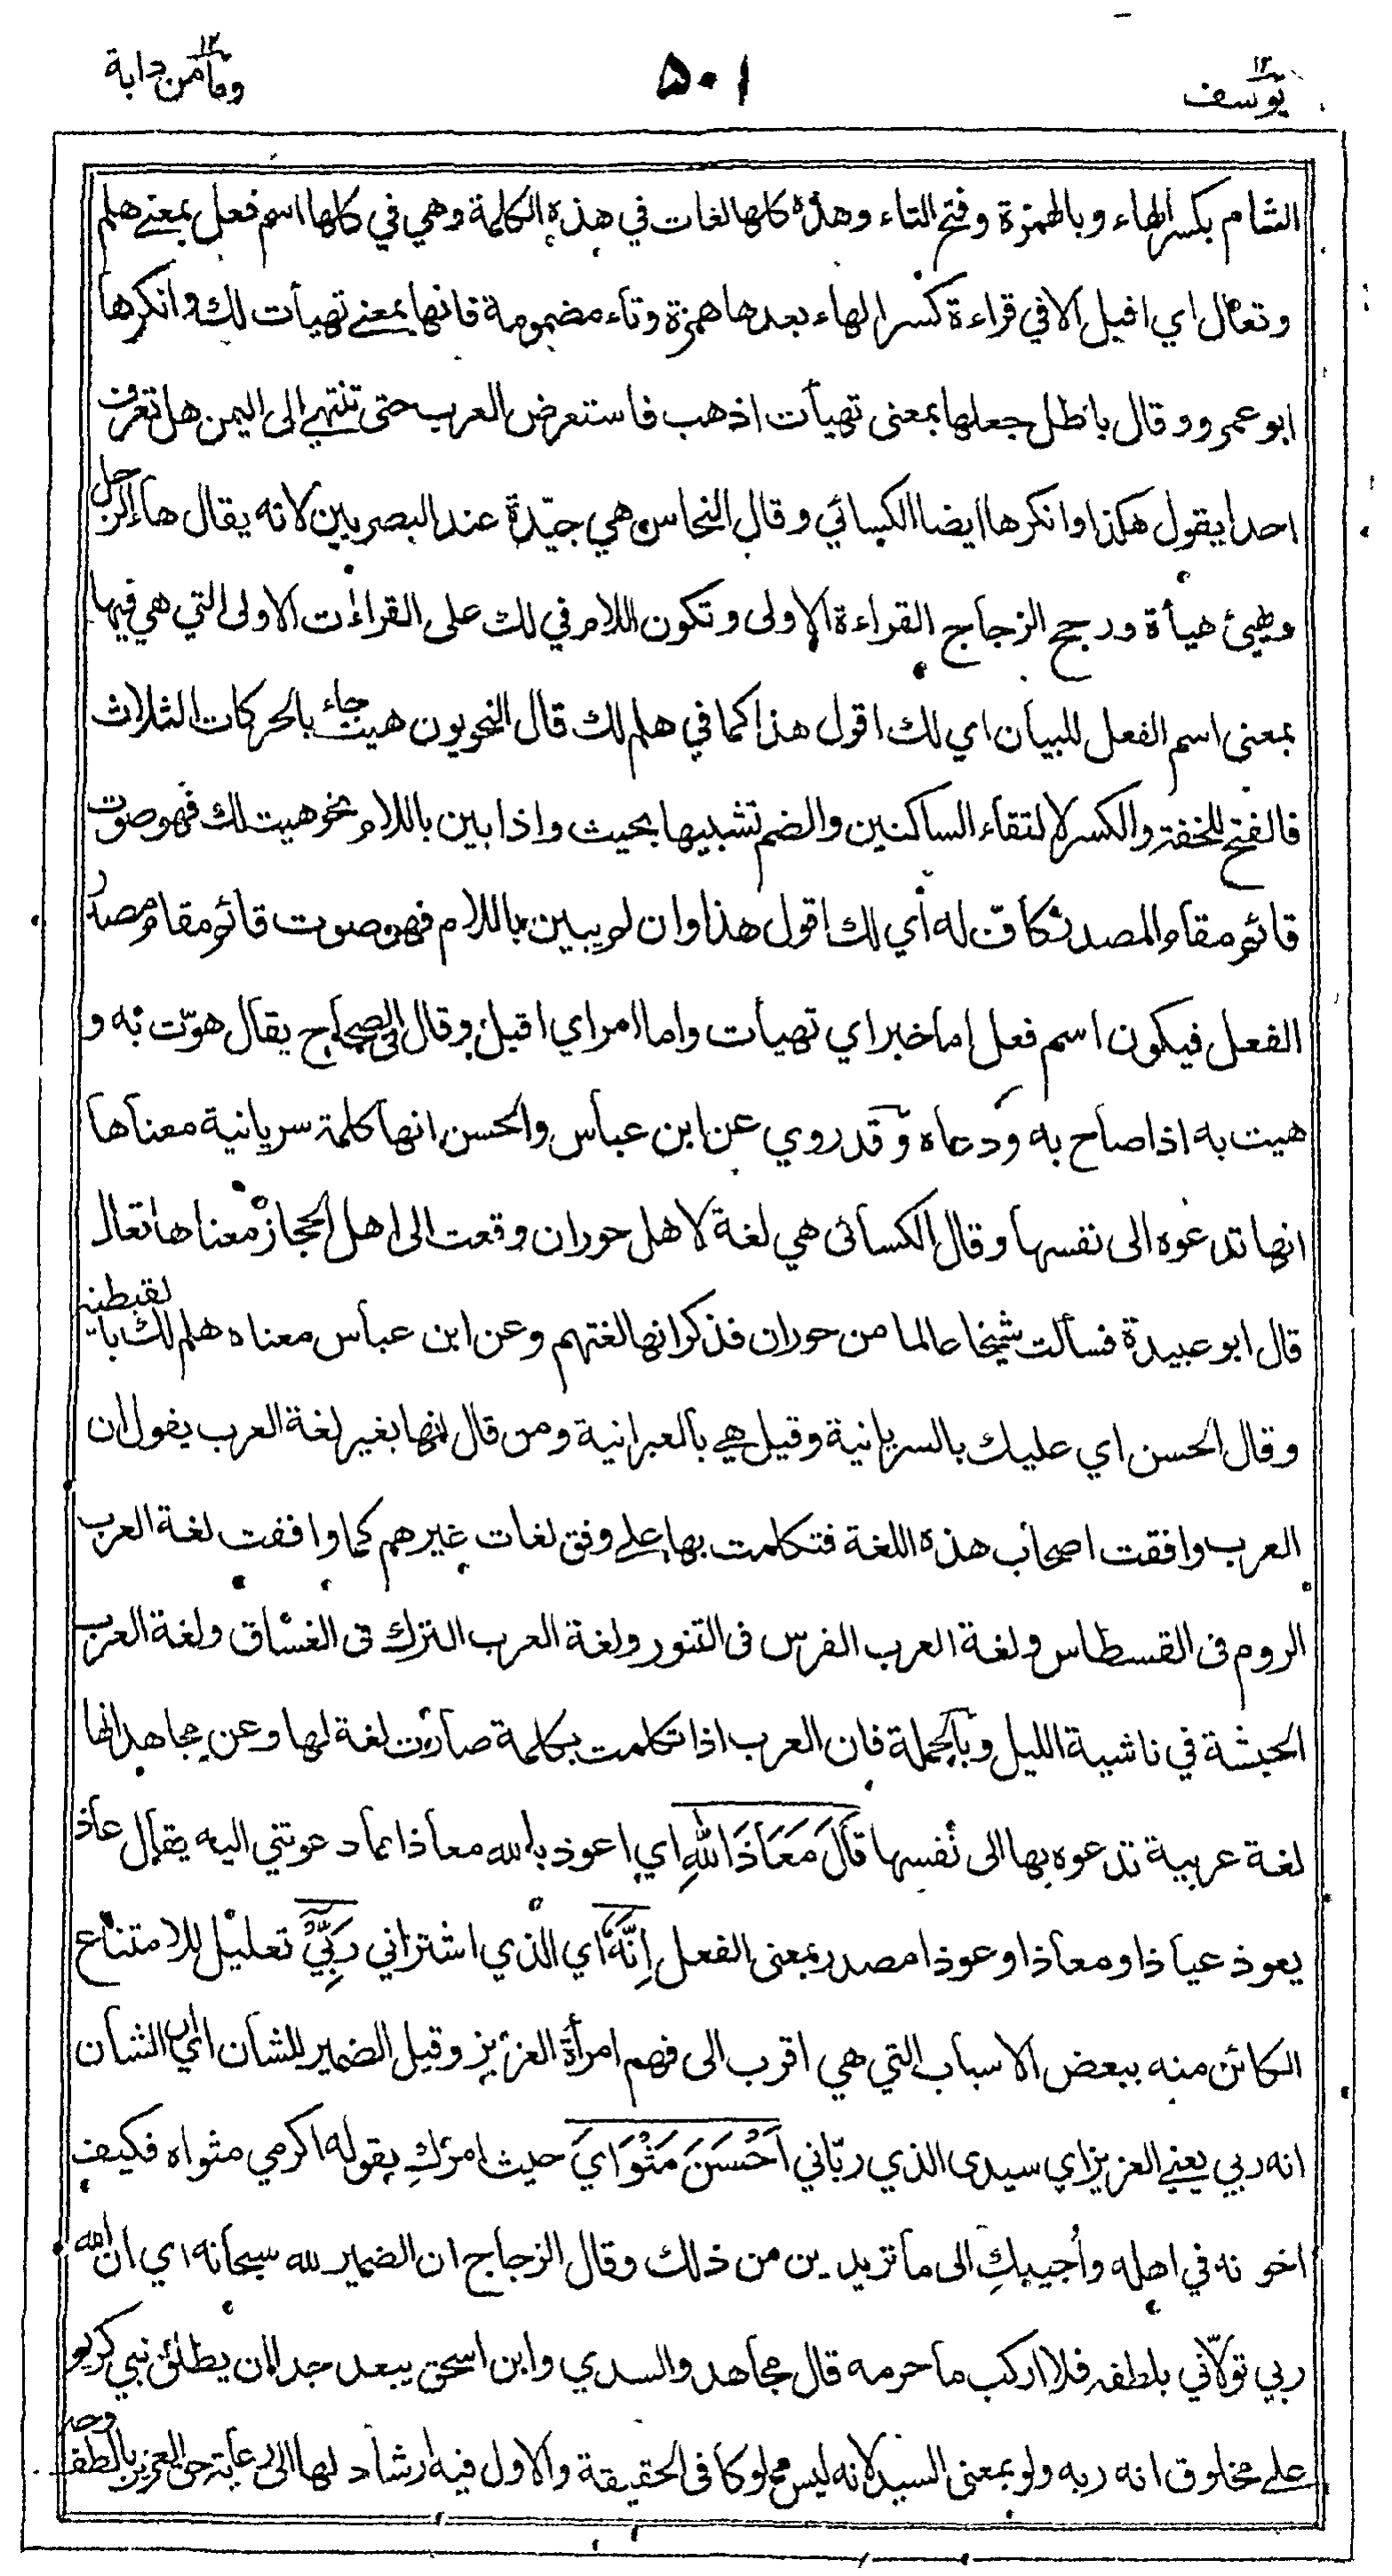 يوسف ١٢
٥٠١
وما من دابة ١٢
الشام بكسر الهاء وبالهمزة وفتح التاء وهذه كلها لغات في هذه الكلمة وهي في كلها اسم فعل بمعنى هلم
وتعال اي اقبل الا في قراءة كسر الهاء بعدها همزة وتاء مضمومة فانها بمعنى تهيأت لك وانكرها
ابو عمرو وقال باطل جعلها بمعنى تهيأت اذهب فاستعرض العرب حتى تنتهي الى اليمن هل تعرف
احدا يقول هكذا وانكرها ايضا الكسائي وقال النحاس هي جيّدة عند البصريين لانه يقال هاء الرجل
ويهيئ هيأة ورجح الزجاج القراءة الاولى وتكون اللام في لك على القراءات الاولى التي هي فيها
بمعنى اسم الفعل للبيان اي لك اقول هذا كما في هلم لك قال النحويون هيت جاء بالحركات الثلاث
فالفتح للخفة والكسر لالتقاء الساكنين والضم تشبيها بحيث واذا بين باللام نحو هيت لك فهو صوت
قائم مقام المصدر كافّ له أي لك اقول هذا وان لم يبين باللام فهو صوت قائم مقام مصدر
الفعل فيكون اسم فعل اما خبر اي تهيأت واما امر اي اقبل وقال في الصحاح يقال هوّت به و
هيت به اذا صاح به ودعاه وقد روي عن ابن عباس والحسن انها كلمة سريانية معناها
انها تدعوه الى نفسها وقال الكسائى هي لغة لاهل حوران وقعت الى اهل الحجاز معناها تعال
قال ابو عبيدة فسألت شيخا عالما من حوران فذكر انها لغتهم وعن ابن عباس معناه هلم لك بالقبطية
وقال الحسن اي عليك بالسريانية وقيل هي بالعبرانية ومن قال انها بغير لغة العرب يقول ان
العرب وافقت اصحاب هذه اللغة فتكلمت بها على وفق لغات غيرهم كما وافقت لغة العرب
الروم فى القسطاس ولغة العرب الفرس فى التنور ولغة العرب الترك فى الغساق ولغة العرب
الحبشة في ناشية الليل وبالجملة فان العرب اذا تكلمت بكلمة صارت لغة لها وعن مجاهد انها
لغة عربية تدعوه بها الى نفسها قَالَ مَعَاذَ اللّٰهِ اي اعوذ بالله معاذا مما دعوتني اليه يقال عاذ
يعوذ عياذا ومعاذا وعوذا مصدر بمعنى الفعل اِنَّهُ اي الذي اشتراني رَبِّيْ تعليل للامتناع
الكائن منه ببعض الاسباب التي هي اقرب الى فهم امرأة العزيز وقيل الضمير للشأن اي ان الشأن
انه ربي يعني العزيز اي سيدى الذي ربّاني اَحْسَنَ مَثْوَايَ حيث امركِ بقوله اكرمي مثواه فكيف
اخونه في اهله وأُجيبكِ الى ما تريدين من ذلك وقال الزجاج ان الضمير لله سبحانه اي ان الله
ربي تولّاني بلطفه فلا اركب ما حرمه قال مجاهد والسدي وابن اسحق يبعد جدا ان يطلق نبي كريم
على مخلوق انه ربه ولو بمعنى السيد لانه ليس مملوكا فى الحقيقة والاول فيه ارشاد لها الى رعاية حق العزيز بالطف وجه